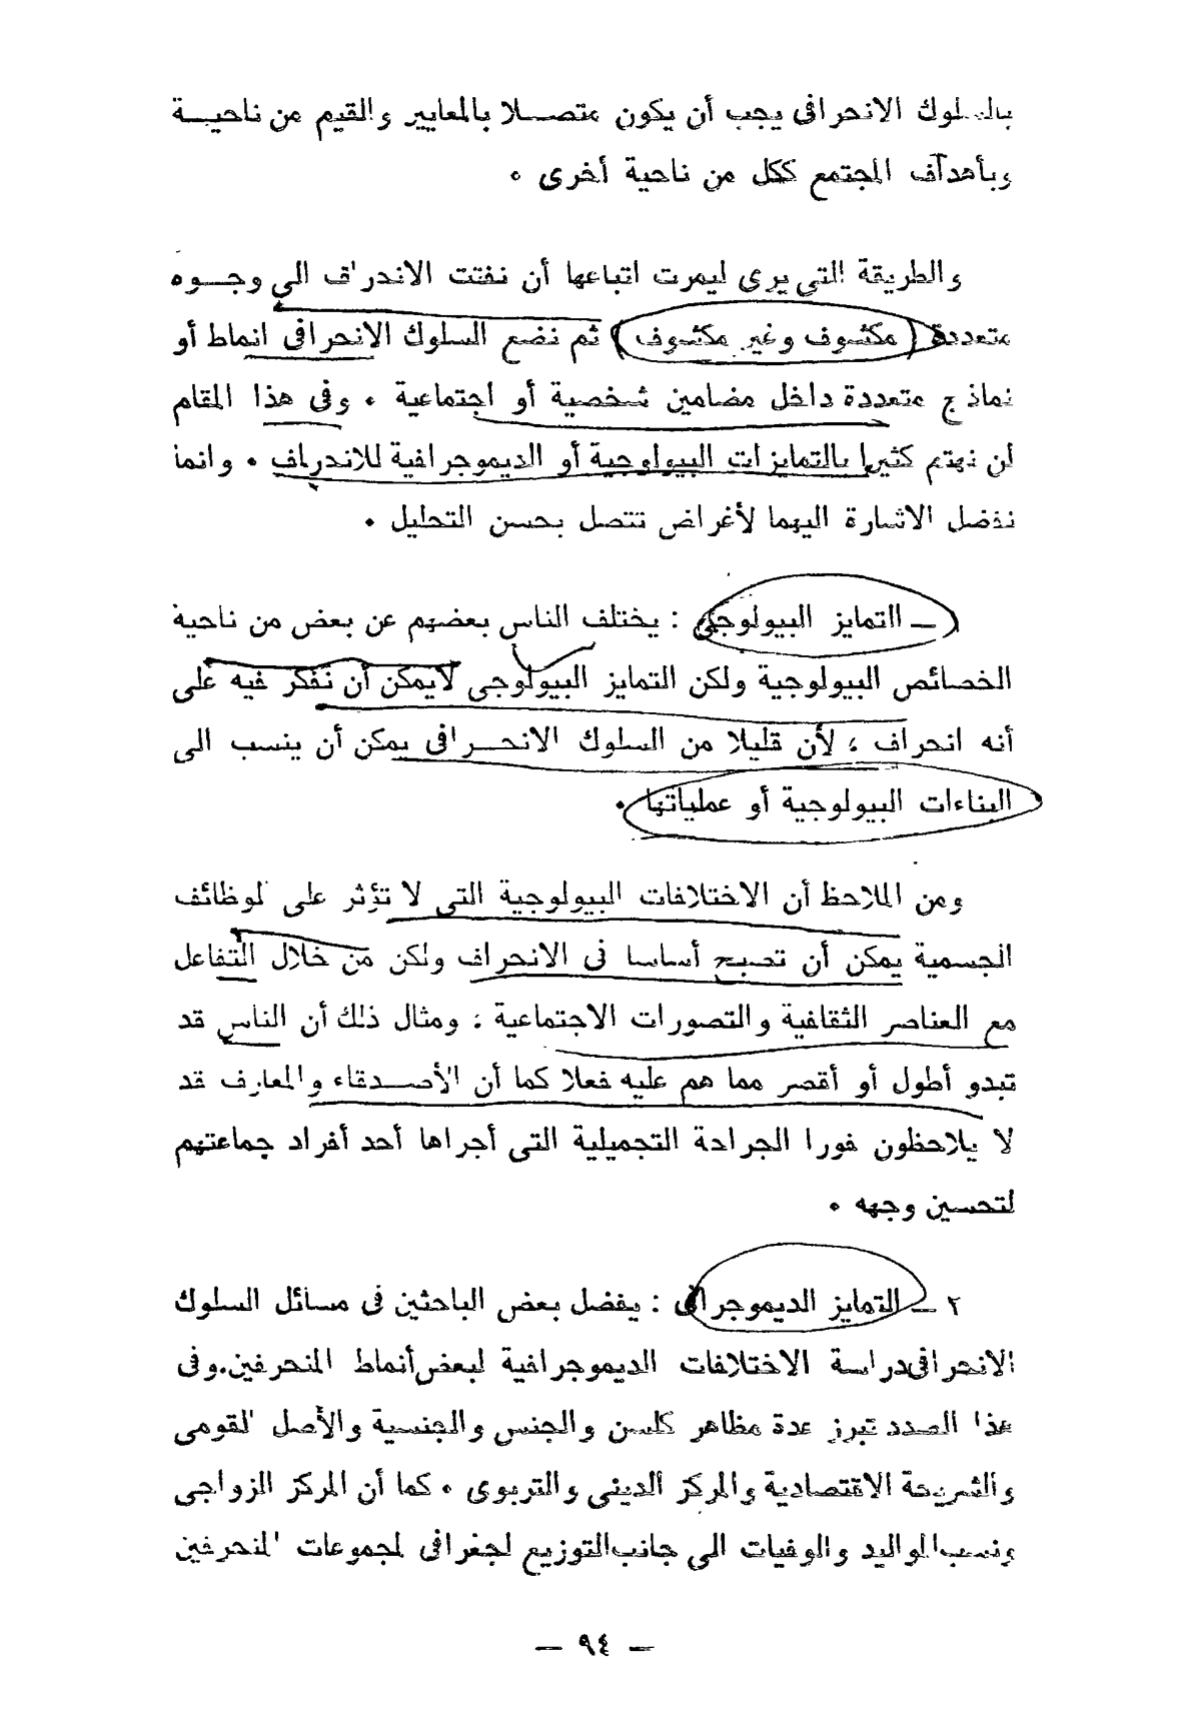 بالسلوك الانحرافى يجب أن يكون متصلا بالمعايير والقيم من ناحية
وبأهداف المجتمع ككل من ناحية أخرى ٠
والطريقة التى يرى ليمرت اتباعها أن نفتت الانحراف الى وجوه
متعددة ( مكشوف وغير مكشوف ) ثم نضع السلوك الانحرافى انماط أو
نماذج متعددة داخل مضامين شخصية أو اجتماعية ٠ وفى هذا المقام
لن نهتم كثيرا بالتمايزات البيولوجية أو الديموجرافية للانحراف ٠ وانما
نفضل الاشارة اليهما لأغراض تتصل بحسن التحليل ٠
١ ــ التمايز البيولوجى : يختلف الناس بعضهم عن بعض من ناحية
الخصائص البيولوجية ولكن التمايز البيولوجى لايمكن أن نفكر فيه على
أنه انحراف ؛ لأن قليلا من السلوك الانحرافى يمكن أن ينسب الى
البناءات البيولوجية أو عملياتها ٠
ومن الملاحظ أن الاختلافات البيولوجية التى لا تؤثر على لوظائف
الجسمية يمكن أن تصبح أساسا فى الانحراف ولكن من خلال التفاعل
مع العناصر الثقافية والتصورات الاجتماعية ؛ ومثال ذلك أن الناس قد
تبدو أطول أو أقصر مما هم عليه فعلا كما أن الأصدقاء والمعارف قد
لا يلاحظون فورا الجراحة التجميلية التى أجراها أحد أفراد جماعتهم
لتحسين وجهه ٠
٢ ــ التمايز الديموجرافى : يفضل بعض الباحثين فى مسائل السلوك
الانحرافى دراسة الاختلافات الديموجرافية لبعض أنماط المنحرفين ٠ وفى
هذا الصدد تبرز عدة مظاهر كلسن والجنس والجنسية والأصل القومى
والشريحة الاقتصادية والمركز الدينى والتربوى ٠ كما أن المركز الزواجى
ونسب المواليد والوفيات الى جانب التوزيع لجغرافى لمجموعات المنحرفين
ــ ٩٤ ــ